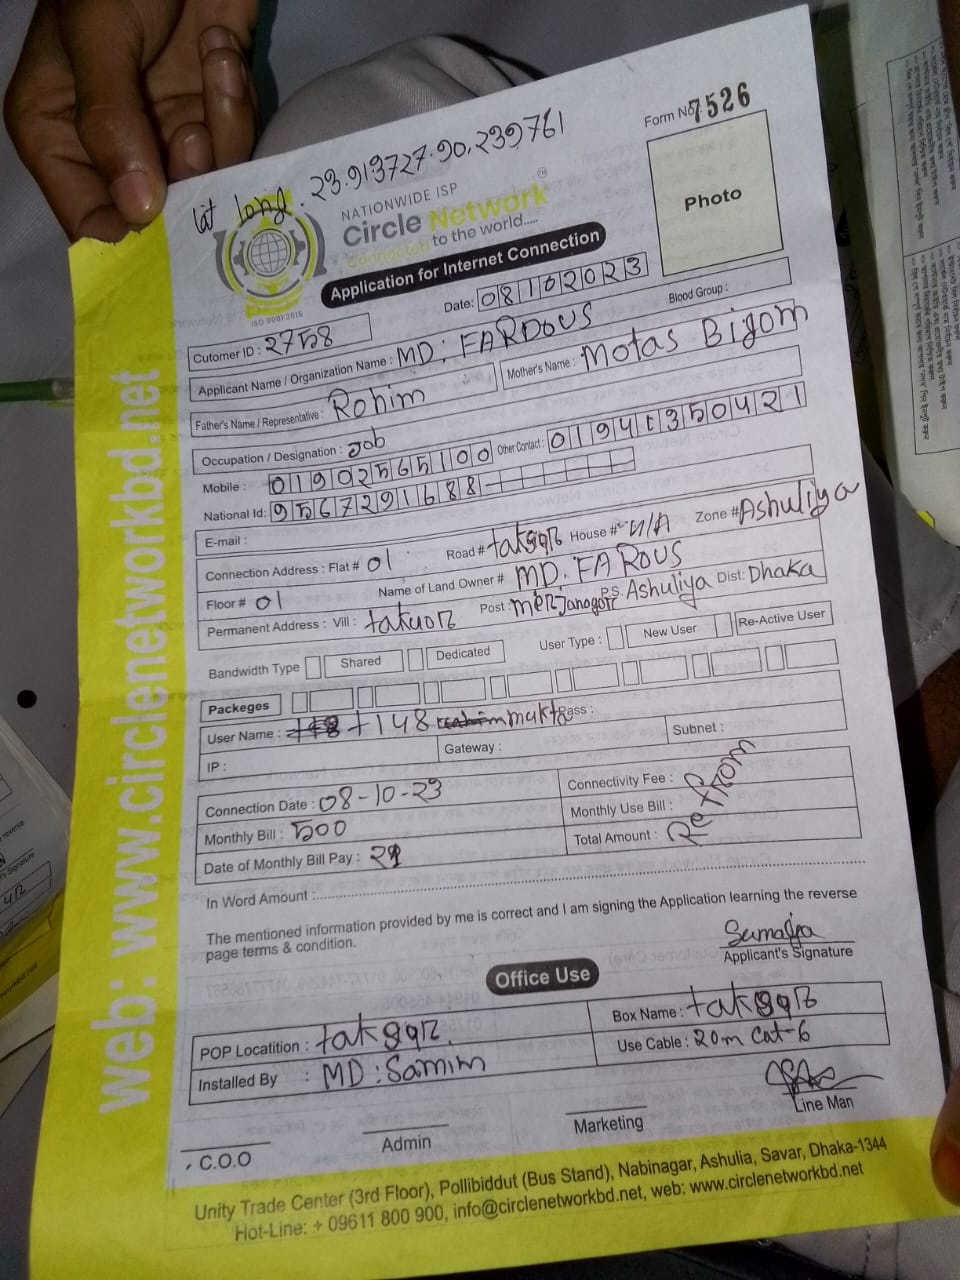 Form No 7526
Lat long. 23.913727.90.239761
NATIONWIDE ISP
Circle Network
Connected to the world.....
ISO 9001:2015
Photo
Application for Internet Connection
Date: 08102023
Blood Group :
Cutomer ID : 2758
Applicant Name / Organization Name : MD: FARDOUS
Father's Name / Representative : Rohim
Mother's Name : Motas Bigom
Occupation / Designation : Job
Mobile : 01902565100 Other Contact :
National Id: 9567291688
E-mail :
Connection Address : Flat # 01 Road # House # N/A Zone # Ashuliya
Floor # 01 Name of Land Owner # MD. FAROUS
Permanent Address : Vill : Post : P.S. Ashuliya Dist: Dhaka
Bandwidth Type Shared Dedicated User Type : New User Re-Active User
Packeges
User Name : t148 Pass :
IP : Gateway : Subnet :
Connection Date : 08-10-23 Connectivity Fee :
Monthly Bill : 500 Monthly Use Bill :
Date of Monthly Bill Pay : Total Amount :
In Word Amount :
The mentioned information provided by me is correct and I am signing the Application learning the reverse
page terms & condition.
Sumaiya
Applicant's Signature
Office Use
POP Locatition : Box Name :
Installed By : MD: Samim Use Cable : 20m Cat-6
C.O.O Admin Marketing Line Man
Unity Trade Center (3rd Floor), Pollibiddut (Bus Stand), Nabinagar, Ashulia, Savar, Dhaka-1344
Hot-Line: + 09611 800 900, info@circlenetworkbd.net, web: www.circlenetworkbd.net
web: www.circlenetworkbd.net